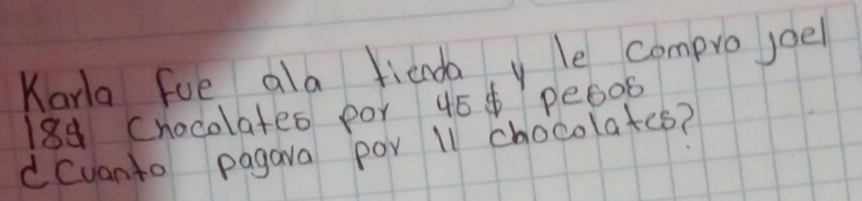 Karla fue ala tienda y le compro joel
184 chocolates por 45 $ pesos
¿Cuanto pagara por 11 chocolates?